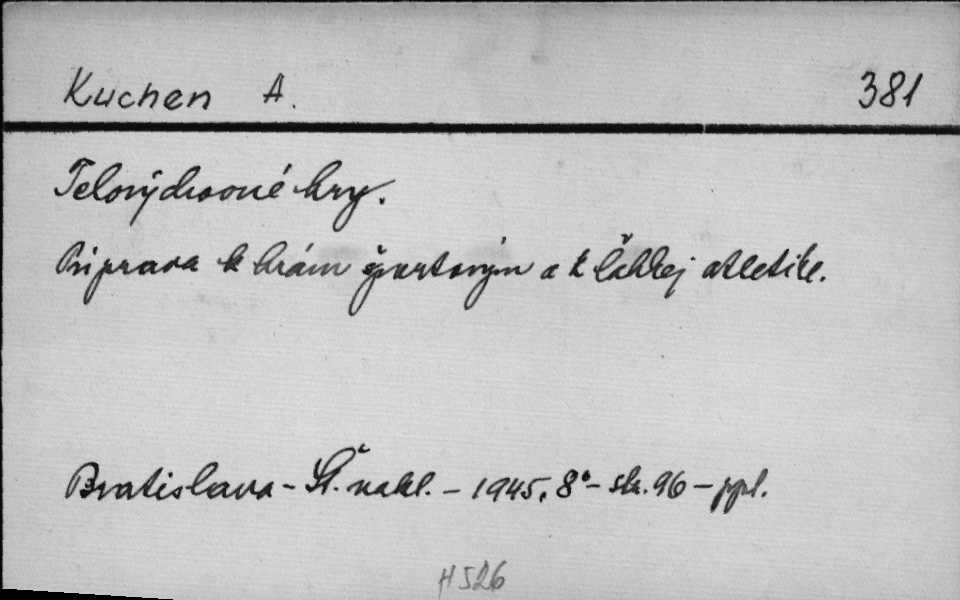 Kuchen A. 381
Telovýchovné hry.
Príprava k hrám športovým a k ľahkej atletike.
Bratislava - Št. nakl. - 1945, 8° - str. 96 - ppl.
H 526